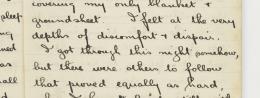 covering my only blanket &
groundsheet. I felt at the very
depths of discomfort & despair.
I got through this night somehow,
but there were others to follow
that proved equally as hard,